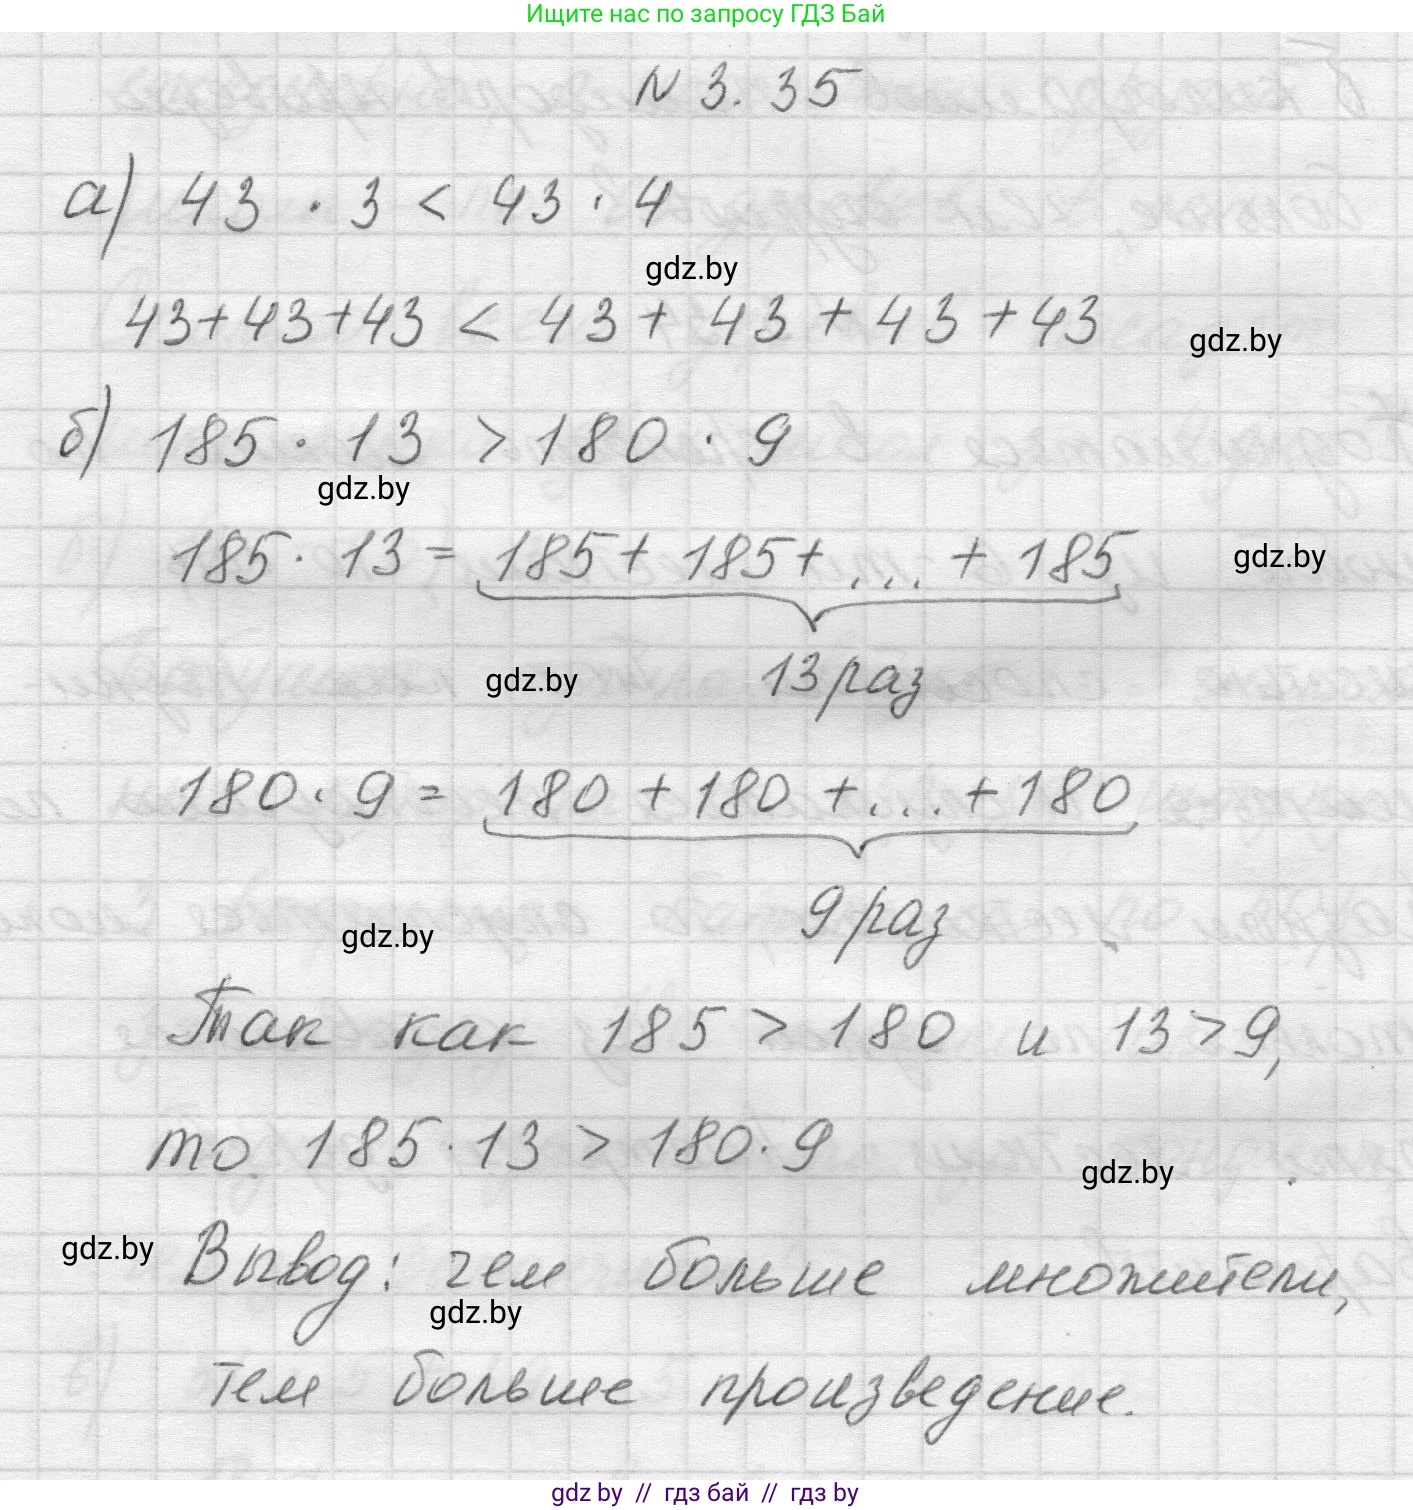 Ищите нас по запросу ГДЗ Бай
N 3. 35
а) 43 · 3 < 43 · 4
gdz.by
43+43+43 < 43 + 43 + 43 + 43
gdz.by
б) 185 · 13 > 180 · 9
gdz.by
185 · 13 = 185 + 185 + ... + 185
gdz.by
13 раз
gdz.by
180 · 9 = 180 + 180 + ... + 180
9 раз
gdz.by
Так как 185 > 180 и 13 > 9,
то 185 · 13 > 180 · 9
gdz.by
gdz.by
Вывод: чем больше множители,
gdz.by
тем больше произведение.
gdz by // гдз бай // гдз by